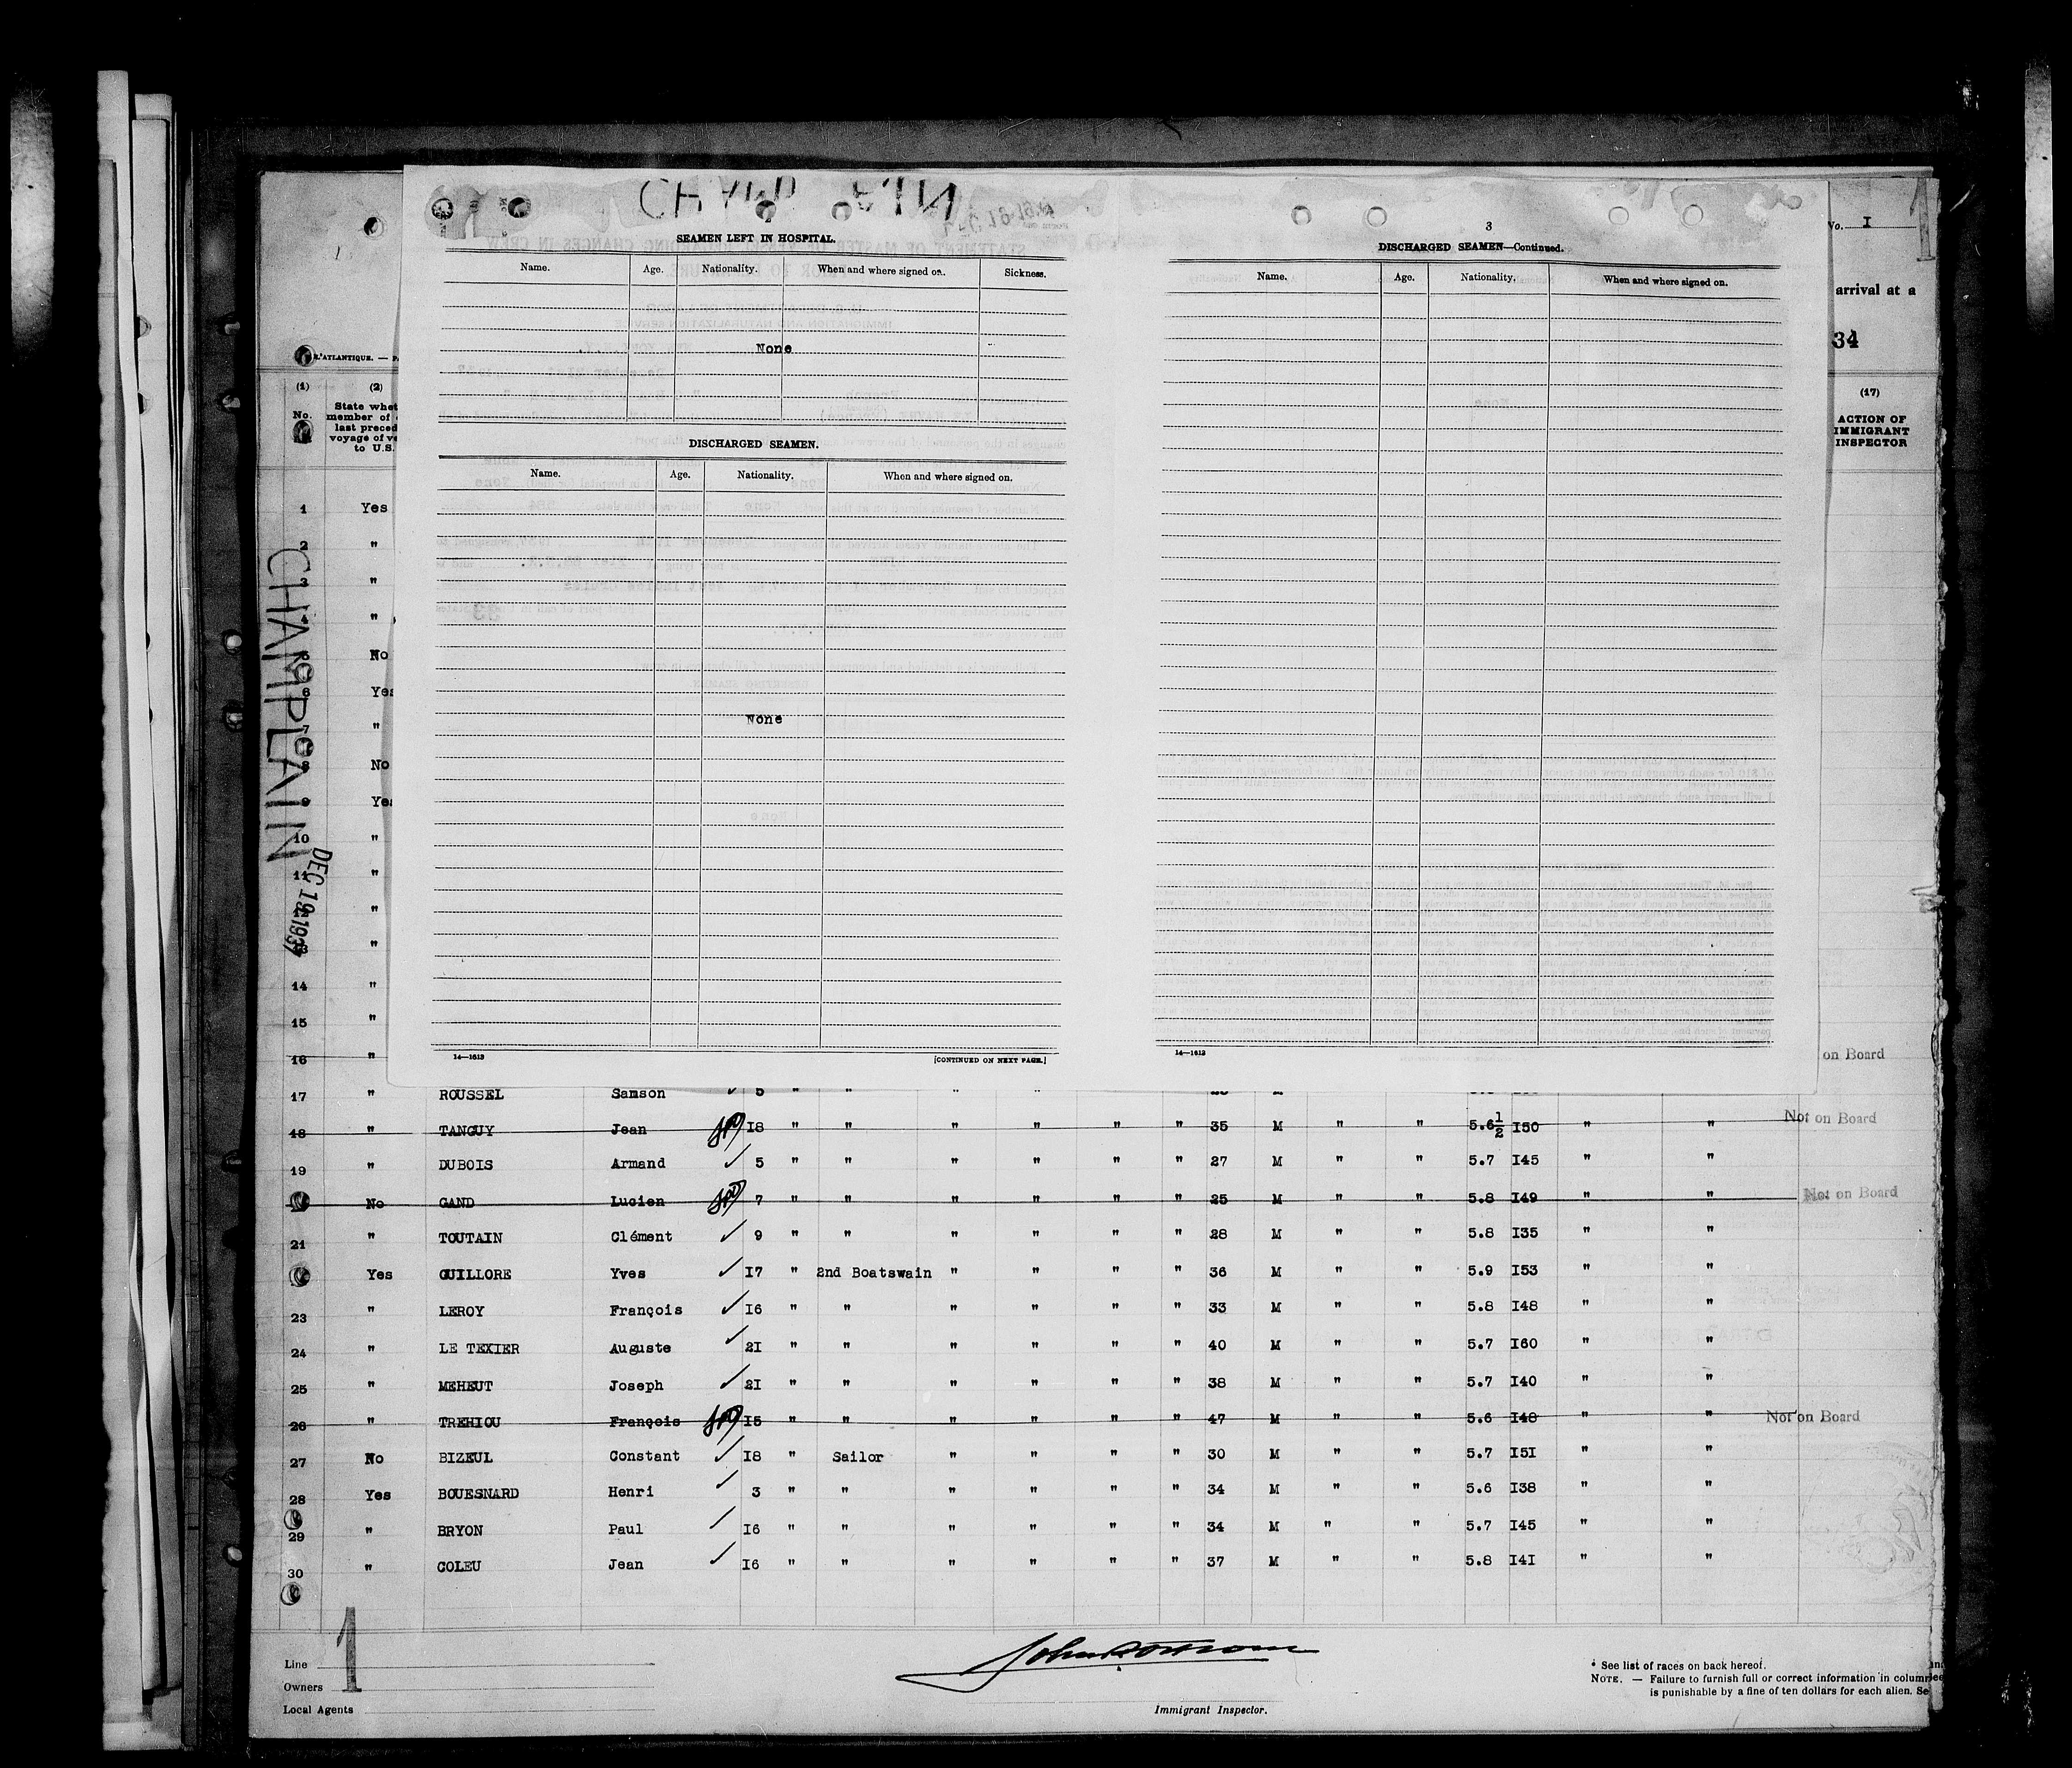 SEAMEN LEFT IN HOSPITAL.
Name. Age. Nationality. When and where signed on. Sickness.
None
DISCHARGED SEAMEN.
Name. Age. Nationality. When and where signed on.
None
14—1613 [CONTINUED ON NEXT PAGE.]
3
DISCHARGED SEAMEN—Continued.
Name. Age. Nationality. When and where signed on.
14—1613
No. I
arrival at a
34
(17)
ACTION OF
IMMIGRANT
INSPECTOR
ATLANTIQUE. —
(1) (2)
No.
State whet
member of
last preced
voyage of ve
to U.S.
CHAMPLAIN
DEC 19 1937
1 Yes
2 "
3 "
4 "
5 No
6 Yes
7 "
8 No
9 Yes
10 "
11 "
12 "
13 "
14 "
15 "
16 " on Board
17 " ROUSSEL Samson 5 " " " "
18 " TANGUY Jean I8 " " " " " " 35 M " " 5.6½ I50 " " Not on Board
19 " DUBOIS Armand 5 " " " " " " 27 M " " 5.7 I45 " "
No GAND Lucien 7 " " " " " " 25 M " " 5.8 I49 " " Not on Board
21 " TOUTAIN Clément 9 " " " " " " 28 M " " 5.8 I35 " "
Yes GUILLORE Yves I7 " 2nd Boatswain " " " " 36 M " " 5.9 I53 " "
23 " LEROY François I6 " " " " " " 33 M " " 5.8 I48 " "
24 " LE TEXIER Auguste 2I " " " " " " 40 M " " 5.7 I60 " "
25 " MEHEUT Joseph 2I " " " " " " 38 M " " 5.7 I40 " "
26 " TREHIOU François I5 " " " " " " 47 M " " 5.6 I48 " " Not on Board
27 No BIZEUL Constant I8 " Sailor " " " " 30 M " " 5.7 I5I " "
28 Yes BOUESNARD Henri 3 " " " " " " 34 M " " 5.6 I38 " "
29 " BRYON Paul I6 " " " " " " 34 M " " 5.7 I45 " "
30 " COLEU Jean I6 " " " " " " 37 M " " 5.8 I4I " "
1
Line
Owners
Local Agents
Immigrant Inspector.
* See list of races on back hereof.
NOTE. — Failure to furnish full or correct information in column
is punishable by a fine of ten dollars for each alien. Se